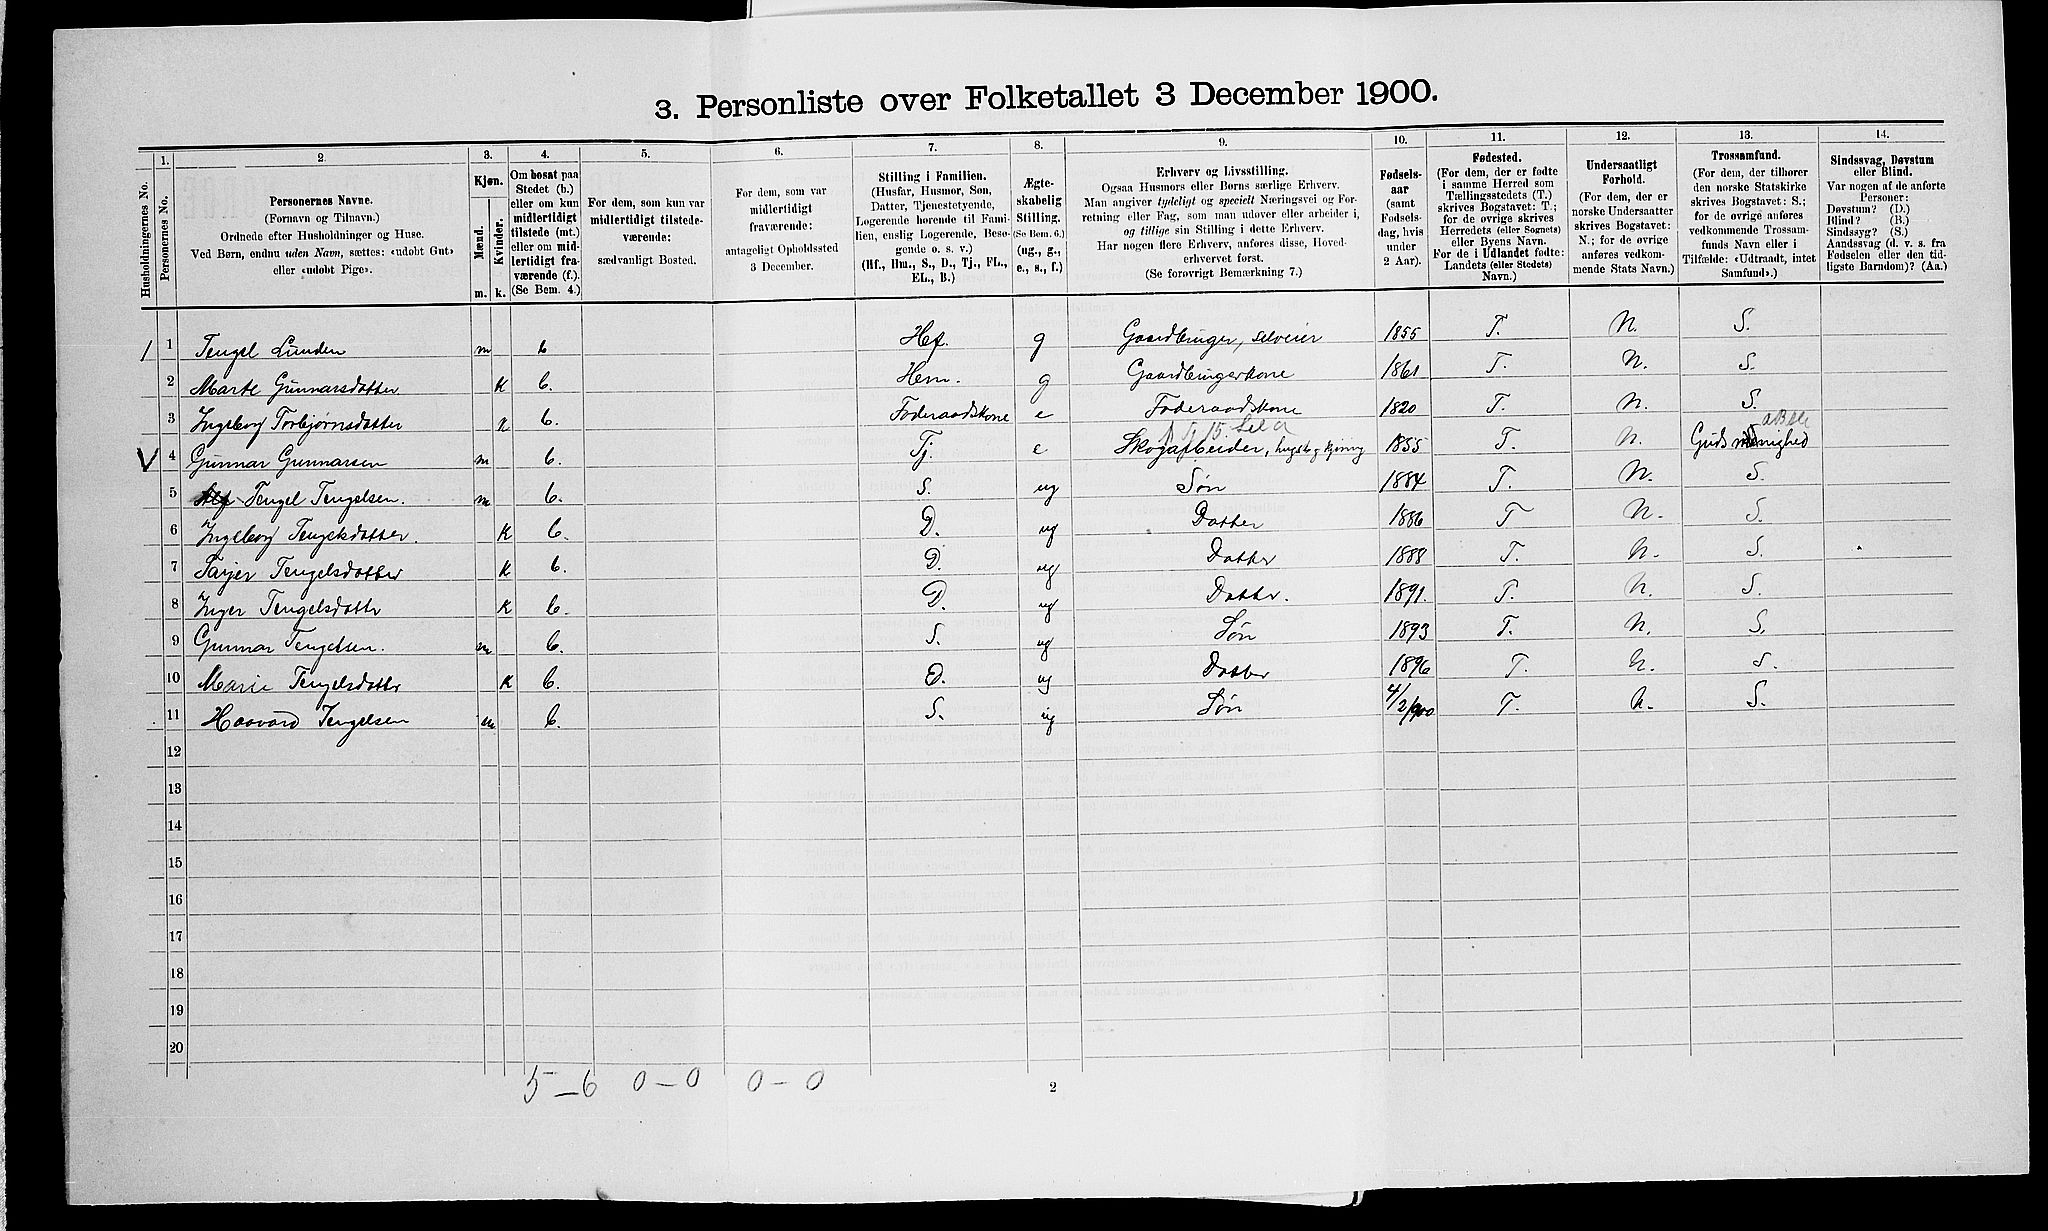 3. Personliste over Folketallet 3 December 1900.
Husholdningernes No.
1.
Personernes No.
2.
Personernes Navne.
(Fornavn og Tilnavn.)
Ordnede efter Husholdninger og Huse.
Ved Børn, endnu uden Navn, sættes: «udøbt Gut»
eller «udøbt Pige».
3.
Kjøn.
Mænd.
Kvinder.
m. k.
4.
Om bosat paa
Stedet (b.)
eller om kun
midlertidigt
tilstede (mt.)
eller om mid-
lertidigt fra-
værende (f.).
(Se Bem. 4.)
5.
For dem, som kun var
midlertidigt tilstede-
værende:
sædvanligt Bosted.
6.
For dem, som var
midlertidigt
fraværende:
antageligt Opholdssted
3 December.
7.
Stilling i Familien.
(Husfar, Husmor, Søn,
Datter, Tjenestetyende,
Logerende hørende til Fami-
lien, enslig Logerende, Besø-
gende o. s. v.)
(Hf., Hm., S., D., Tj., FL.,
EL., B.)
8.
Ægte-
skabelig
Stilling.
(Se Bem. 6.)
(ug., g.,
e., s., f.)
9.
Erhverv og Livsstilling.
Ogsaa Husmors eller Børns særlige Erhverv.
Man angiver tydeligt og specielt Næringsvei og For-
retning eller Fag, som man udøver eller arbeider i,
og tillige sin Stilling i dette Erhverv.
Har nogen flere Erhverv, anføres disse, Hoved-
erhvervet først.
(Se forøvrigt Bemærkning 7.)
10.
Fødsels-
aar
(samt
Fødsels-
dag, hvis
under
2 Aar).
11.
Fødested.
(For dem, der er fødte
i samme Herred som
Tællingsstedets (T.)
skrives Bogstavet: T.;
for de øvrige skrives
Herredets (eller Sognets)
eller Byens Navn.
For de i Udlandet fødte:
Landets (eller Stedets)
Navn.)
12.
Undersaatligt
Forhold.
(For dem, der er
norske Undersaatter
skrives Bogstavet:
N.; for de øvrige
anføres vedkom-
mende Stats Navn.)
13.
Trossamfund.
(For dem, der tilhører
den norske Statskirke
skrives Bogstavet: S.;
for de øvrige anføres
vedkommende Trossam-
funds Navn eller i
Tilfælde: «Udtraadt, intet
Samfund».)
14.
Sindssvag, Døvstum
eller Blind.
Var nogen af de anførte
Personer:
Døvstum? (D.)
Blind? (B.)
Sindssyg? (S.)
Aandssvag (d. v. s. fra
Fødselen eller den tid-
ligste Barndom)? (Aa.)
1 Tengel Lunden m b Hf. g Gaardbruger, selveier 1855 T. N. S.
2 Marte Gunnarsdotter k b. Hm. g Gaardbrugerkone 1861 T. N. S.
3 Ingeborg Torbjørnsdatter k b. Foderaadskone e Foderaadskone 1820 T. N. S.
4 Gunnar Gunnarsen m b. Tj. e Skogarbeider, hugst og kjøring 1855 T. N. Guds menighed
5 Tengel Tengelsen. m b. S. ug Søn 1884 T. N. S.
6 Ingeborg Tengelsdatter. k b. D. ug Datter 1886 T N. S.
7 Tarjer Tengelsdatter k b. D. ug Datter 1888 T. N. S.
8 Inger Tengelsdattr k b. D. ug Dattr. 1891. T. N. S.
9 Gunnar Tengelsen. m b. S. ug Søn 1893 T. N. S.
10 Marie Tengelsdattr k b. D. ug Datter 1896 T. N. S.
11 Haavard Tengelsen m b. S. ug Søn 4/2 1900 T. N. S.
12
13
14
15
16
17
18
19
20
5 - 6 0 - 0 0 - 0
2